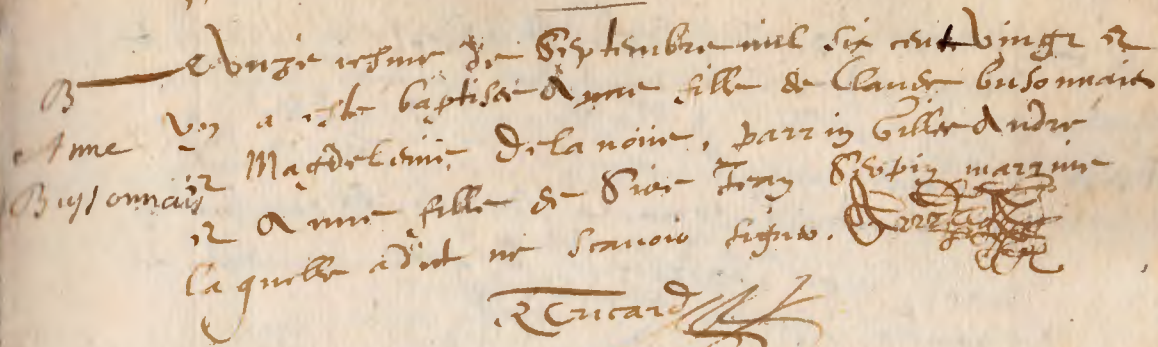 B
Anne
Bussonnais
Unziesme de Septembre mil six cent Vingt et
Un a este baptisée Anne fille de Claude busonnais
et Magdeleine Delanoüe, parrin Gilles André
et Anne fille de Sire Jean Seupin marrine
la quelle a dict ne scavoir signer.
Ricard